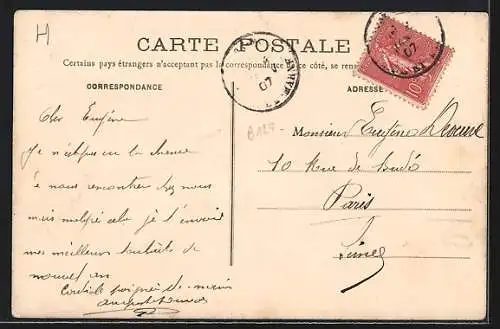 H
CARTE POSTALE
Certains pays étrangers n'acceptant pas la correspondance de ce côté, se rens
CORRESPONDANCE
ADRESSE
10
07
B124
Cher Eugène
Je n'ai pas eu la chance
de nous rencontrer chez nous
mais malgré cela je t'envoie
mes meilleurs souhaits de
nouvel an
poignée de main
Monsieur Eugène
10 Rue de Budé
Paris
Seine